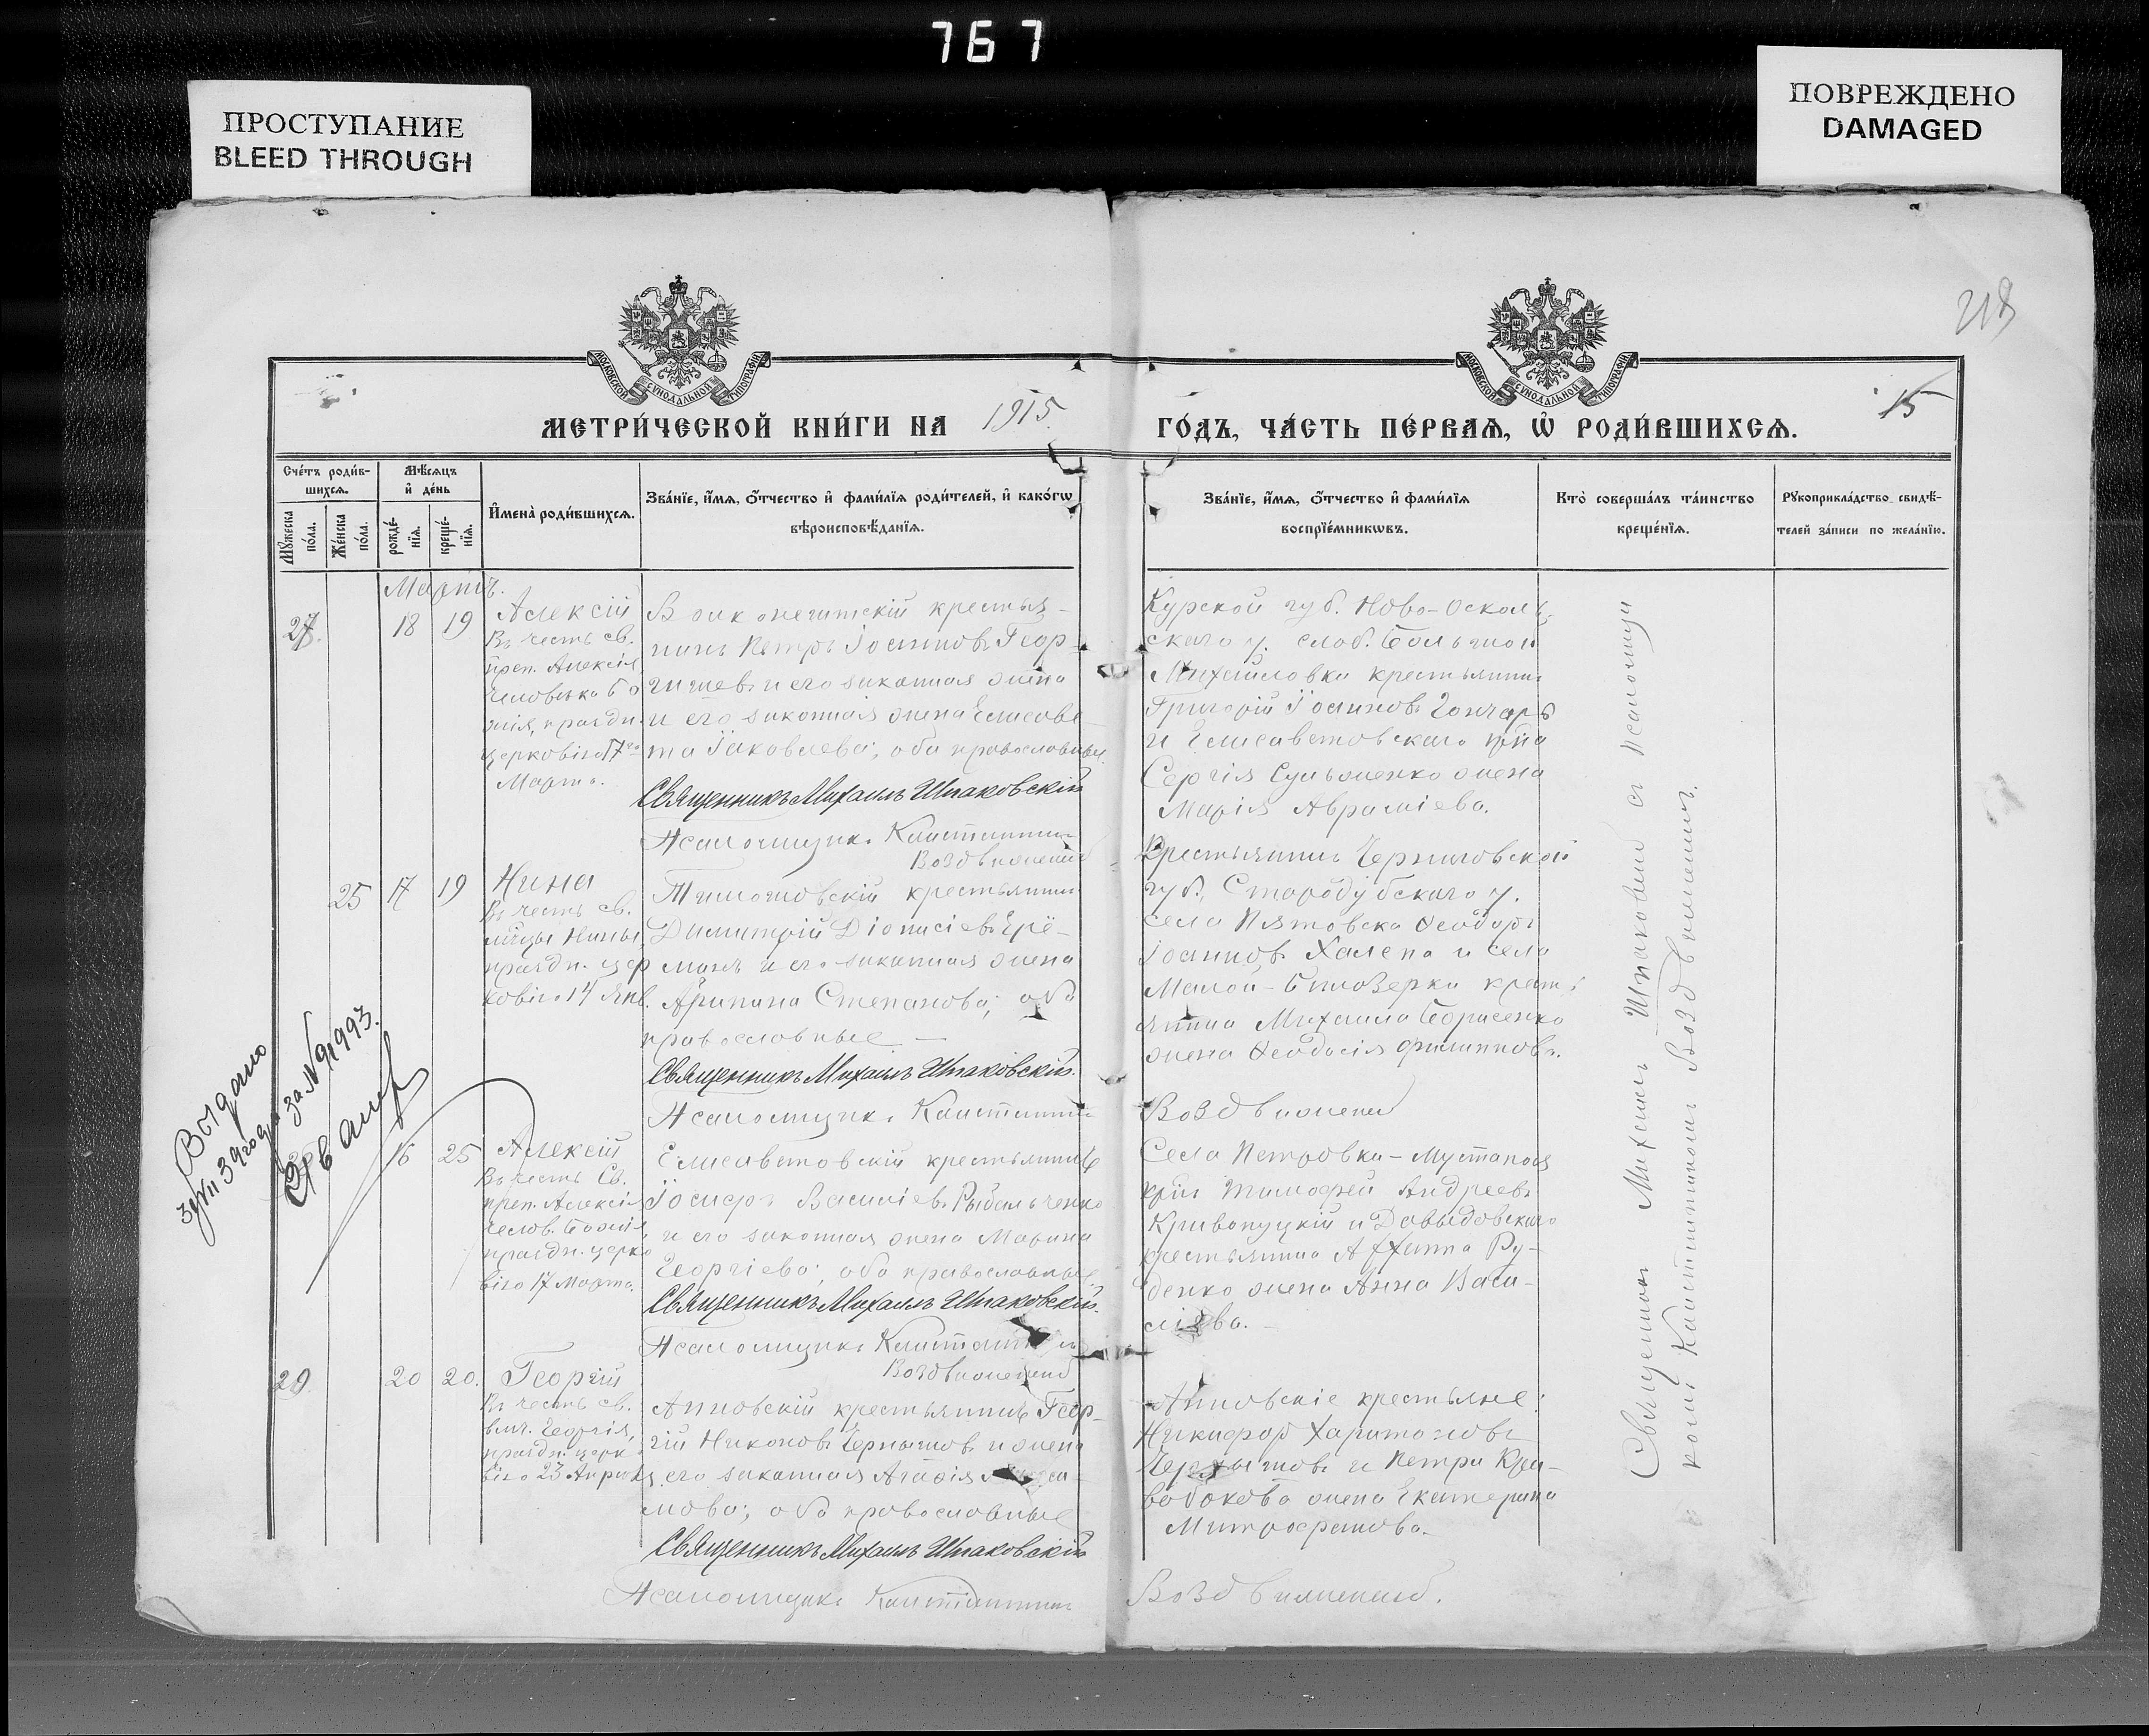 767
ПРОСТУПАНИЕ
BLEED THROUGH
ПОВРЕЖДЕНО
DAMAGED
218
МОСКОВСКОЙ СУНОДАЛЬНОЙ ТИПОГРАФІИ
МОСКОВСКОЙ СУНОДАЛЬНОЙ ТИПОГРАФІИ
МЕТРИ́ЧЕСКОЙ КНИ́ГИ НА 1915. ГО́ДЪ, ЧА́СТЬ ПЕ́РВАЯ, Ѿ РОДИ́ВШИХСЯ.
15
Сче́тъ роди́в-
шихся.
Мѣ́сяцъ
и҆ де́нь
Мꙋ́жеска
по́ла.
Же́нска
по́ла.
рожде́-
нїя.
креще́-
нїя.
И҆мена̀ роди́вшихся.
Зва́нїе, и҆́мя, ѻ҆́тчество и҆ фами́лїя роди́телей, и҆ како́гѡ
вѣроисповѣ́данїя.
Зва́нїе, и҆́мя, ѻ҆́тчество и҆ фами́лїя
воспрїе́мникѡвъ.
Кто̀ соверша́лъ та́инство
креще́нїя.
Рꙋкоприкла́дство свидѣ́-
телей за́писи по жела́нїю.
Мартъ.
27.
18
19
Алексій
Въ честь св.
преп. Алексія
человѣка Бо
жія, праздн.
церковію 17го
Марта.
крестья-
нинъ Петръ Іоанновъ Геор-
гишевъ и его законная жена
и его законная жена Елисаве
та Іаковлева; оба православные.
Священникъ Михаилъ Шпаковскій
Псаломщикъ Константинъ
Воздвиженскій
Курской губ. Ново-Осколь-
скаго у. слоб. Большой
Михайловки крестьянинъ
Григорій Іоанновъ Гончаръ
и Елисаветовскаго кр-на
Сергія жена
Марія Авраміева.
25
17
19
Нина
Въ честь св.
Нины
праздн. цер
ковію 14 Янв.
Тимошовскій крестьянинъ
Димитрій Діонисіевъ Ерё-
и его законная жена
Агрипина Степанова; оба
православные
Священникъ Михаилъ Шпаковскій.
Псаломщикъ Константинъ
Воздвиженскій
Крестьянинъ Черниговской
губ., Стародубскаго у.
села Пятовска Ѳеодоръ
Іоанновъ Халепа и села
Малой-Бѣлозерки кресть
янина Михаила Борисенко
жена Ѳеодосія Филиппова.
Выдано
39 года за № 91993.
16
25
Алексій
Въ честь Св.
преп. Алексія
челов. Божія,
праздн. церко
вію 17 Марта.
Елисаветовскій крестьянинъ
Іосифъ Василіевъ Рыбальченко
и его законная жена Марина
Георгіева; оба православные
Священникъ Михаилъ Шпаковскій.
Псаломщикъ Константинъ
Воздвиженскій
Села Петровки-Мустапоя
Тимофей Андреевъ
Кривопуцкій и Давыдовскаго
крестьянина Ру-
денко жена Анна Васи-
ліева.
29.
20
20.
Георгій
Въ честь св.
влмч. Георгія,
праздн. церк
вію 23 Апрѣля
Анновскій крестьянинъ Геор-
гій Никоновъ Чернышовъ и жена
его законная Агафія
мова; оба православные
Священникъ Михаилъ Шпаковскій
Псаломщикъ Константинъ Воздвиженскій.
Анновскіе крестьяне:
Никифоръ Харитоновъ
Чернышовъ и Петра Кри-
вобокова жена Екатерина
Митрофанова.
Священникъ Михаилъ Шпаковскій съ псаломщи
комъ Константиномъ Воздвиженскимъ.